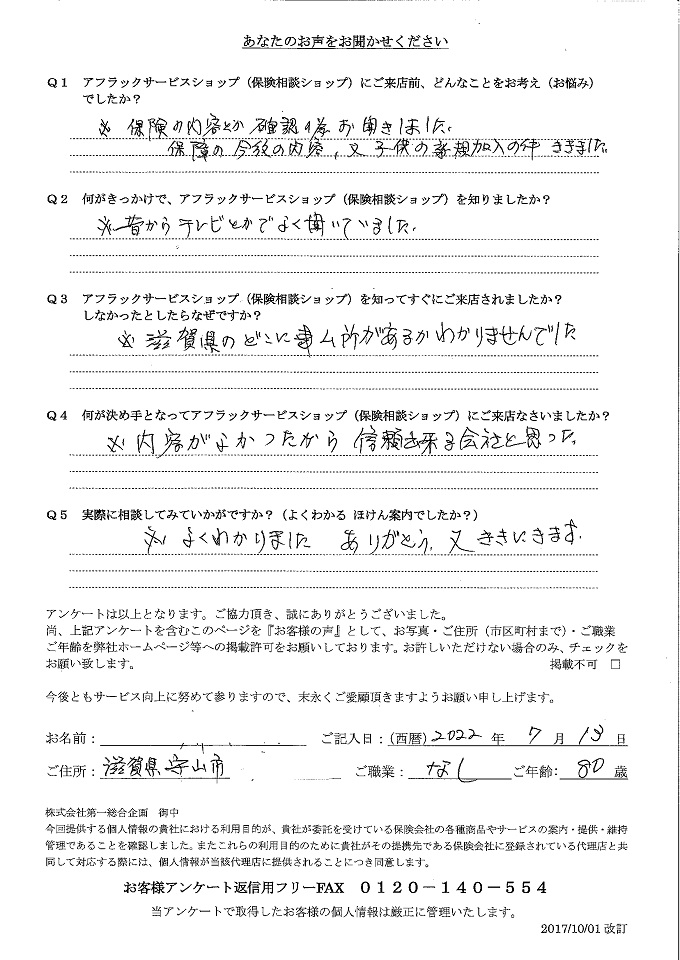 あなたのお声をお聞かせください
Q1 アフラックサービスショップ（保険相談ショップ）にご来店前、どんなことをお考え（お悩み）
でしたか？
※ 保険の内容とか確認の為お聞きしました。
保障の今後の内容、又子供の新規加入の件 ききました。
Q2 何がきっかけで、アフラックサービスショップ（保険相談ショップ）を知りましたか？
※昔からテレビとかでよく聞いていました。
Q3 アフラックサービスショップ（保険相談ショップ）を知ってすぐにご来店されましたか？
しなかったとしたらなぜですか？
※ 滋賀県のどこに事ム所があるかわかりませんでした
Q4 何が決め手となってアフラックサービスショップ（保険相談ショップ）にご来店なさいましたか？
※ 内容がよかつたから 信頼出来る会社と思った。
Q5 実際に相談してみていかがですか？（よくわかる ほけん案内でしたか？）
※ よくわかりました ありがとう、又ききにいきます。
アンケートは以上となります。ご協力頂き、誠にありがとうございました。
尚、上記アンケートを含むこのページを『お客様の声』として、お写真・ご住所（市区町村まで）・ご職業
ご年齢を弊社ホームページ等への掲載許可をお願いしております。お許しいただけない場合のみ、チェックを
お願い致します。 掲載不可 □
今後ともサービス向上に努めて参りますので、末永くご愛顧頂きますようお願い申し上げます。
お名前： ご記入日：（西暦）2022 年 7 月 13 日
ご住所：滋賀県守山市 ご職業：なし ご年齢：80 歳
株式会社第一総合企画 御中
今回提供する個人情報の貴社における利用目的が、貴社が委託を受けている保険会社の各種商品やサービスの案内・提供・維持
管理であることを確認しました。またこれらの利用目的のために貴社がその提携先である保険会社に登録されている代理店と共
同して対応する際には、個人情報が当該代理店に提供されることにつき同意します。
お客様アンケート返信用フリーFAX 0120－140－554
当アンケートで取得したお客様の個人情報は厳正に管理いたします。
2017/10/01 改訂